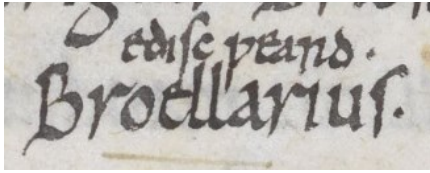 ediſc ƿeard·
Broellariuſ.